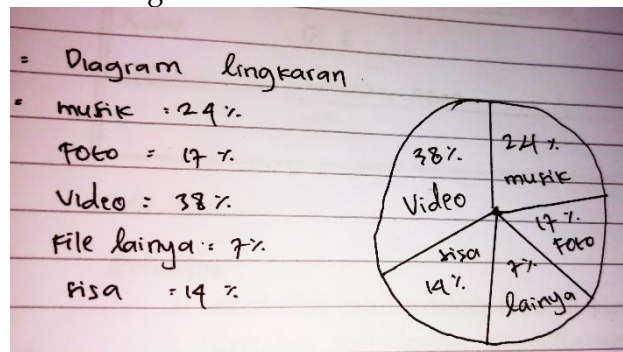 = Diagram lingkaran
= musik = 24%
Foto = 17%
Video = 38%
File lainya = 7%
sisa = 14%
38%
Video
24%
musik
17%
Foto
sisa
14%
7%
lainya